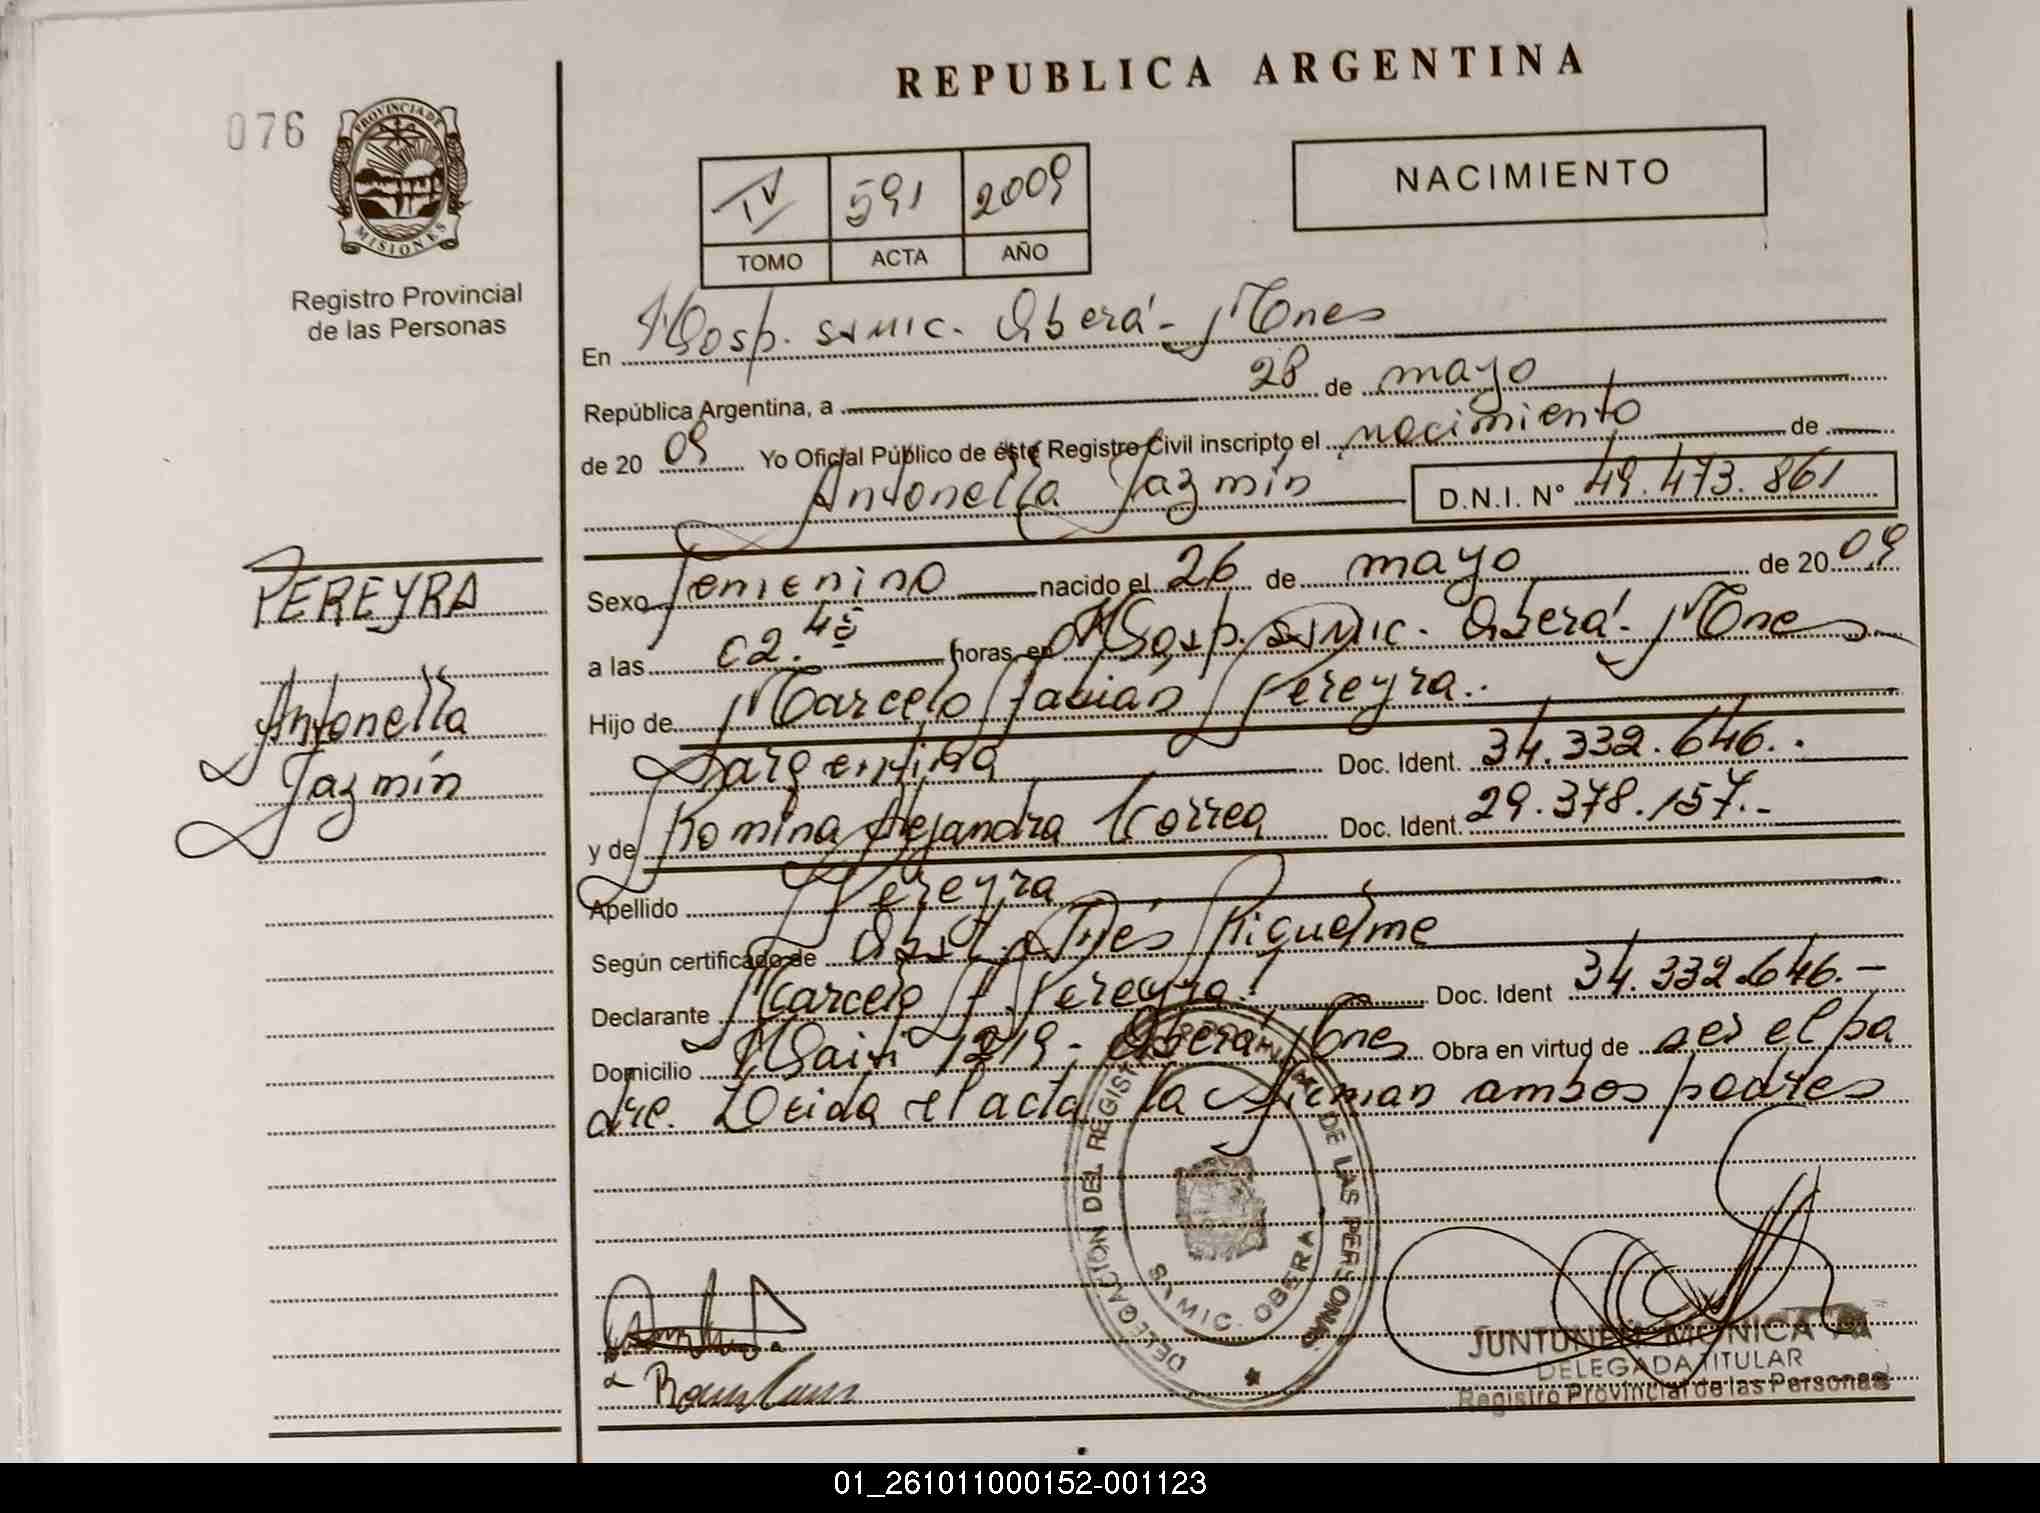 REPUBLICA ARGENTINA
076
PROVINCIA DE
MISIONES
Registro Provincial
de las Personas
IV 591 2009
TOMO ACTA AÑO
NACIMIENTO
En Hosp. SAMIC. Oberá - Mnes
República Argentina, a 28 de mayo
de 20 09 Yo Oficial Público de este Registro Civil inscripto el nacimiento de
Antonella Jazmín D.N.I. N° 49.473.861
PEREYRA
Antonella
Jazmín
Sexo Femenino nacido el 26 de mayo de 20 09
a las 02.45 horas en Hosp. SAMIC. Oberá - Mnes
Hijo de Marcelo Fabian Pereyra..
Argentina Doc. Ident. 34.332.646..
y de Romina Alejandra Correa Doc. Ident. 29.378.157.-
Apellido Pereyra
Según certificado de Obst. Inés Riquelme
Declarante Marcelo F. Pereyra. Doc. Ident 34.332.646.-
Domicilio 1219 - Oberá Mnes Obra en virtud de ser el pa
dre. Leida el acta la firman ambos padres
DELEGACION DEL REGISTRO PROVINCIAL DE LAS PERSONAS
SAMIC. OBERA
MONICA
DELEGADA TITULAR
Registro Provincial de las Personas
01_261011000152-001123